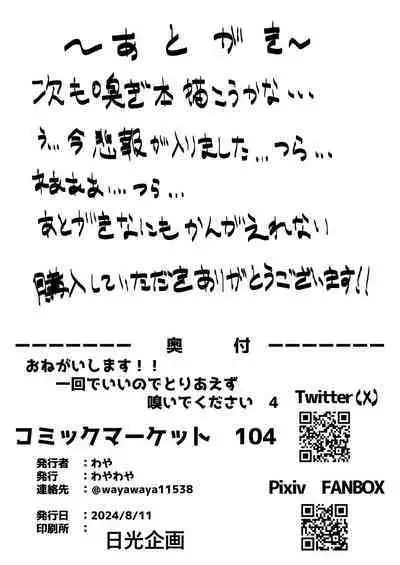 ～あとがき～
次も嗅ぎ本描こうかな…
ぅ…今悲報が入りました…つら…
ねぁぁぁぁ…つら…
あとがきなにもかんがえれない
購入していただきありがとうございます!!
奥 付
おねがいします！！
一回でいいのでとりあえず
嗅いでください 4
コミックマーケット 104
Twitter(X)
Pixiv FANBOX
発行者 ：わや
発行 ：わやわや
連絡先 ：@wayawaya11538
発行日 ：2024/8/11
印刷所 ：日光企画